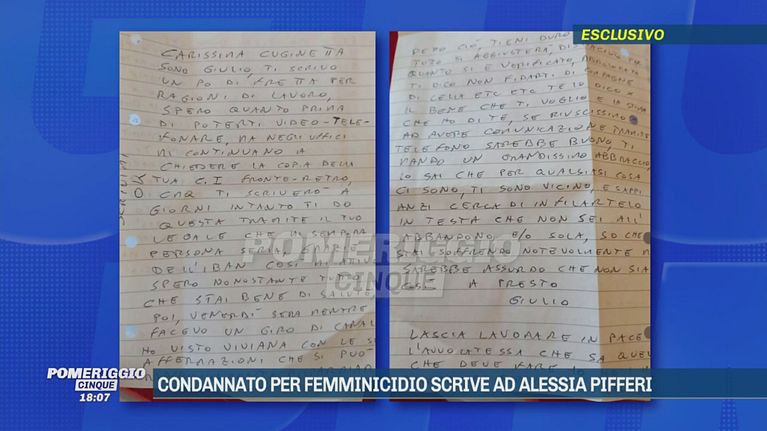 ESCLUSIVO
CARISSIMA CUGINETTA
SONO GIULIO, TI SCRIVO
UN PO DI FRETTA PER
RAGIONI DI LAVORO,
SPERO QUANTO PRIMA
DI POTERTI VIDEO-TELE-
FONARE, MA NEGLI UFFICI
MI CONTINUANO A
CHIEDERE LA COPIA DELLA
TUA C.I FRONTE-RETRO,
CMQ TI SCRIVERÒ A
GIORNI INTANTO TI DO
QUESTA TRAMITE IL TUO
LEGALE CHE MI SEMBRA
PERSONA SERIA,
DELL'IBAN COSÌ
SPERO NONOSTANTE TUTTO
CHE STAI BENE DI SALUTE,
POI, VENERDI SERA MENTRE
FACEVO UN GIRO DI CANALI
HO VISTO VIVIANA CON LE SU
AFFERRAZIONI CHE SI PUÒ
DETTO CIÒ, TIENI DURO
TUTO SI AGGIUSTERÀ,
QUANTO SI È VERIFICATO,
TI DICO NON FIDARTI DI COMPAGNE
DI CELLA ETC ETC TE LO DICO X
IL BENE CHE TI VOGLIO E LA STIMA
CHE HO DI TE, SE RIUSCISSIMO
AD AVERE COMUNICAZIONE TRAMITE
TELEFONO SAREBBE BUONO, TI
MANDO UN GRANDISSIMO ABBRACCIO,
LO SAI CHE PER QUALSIASI COSA
CI SONO, TI SONO VICINO, E SAPPI
ANZI CERCA DI INFILARTELO
IN TESTA CHE NON SEI ALL'
ABBANDONO E/O SOLA, SO CHE
STAI SOFFRENDO NOTEVOLMENTE M
SAREBBE ASSURDO CHE NON SIA
COSÌ A PRESTO
GIULIO
LASCIA LAVORARE IN PACE
L'AVVOCATESSA CHE SA QUEL
CHE DEVE FARE
POMERIGGIO
CINQUE
POMERIGGIO
CINQUE
18:07
CONDANNATO PER FEMMINICIDIO SCRIVE AD ALESSIA PIFFERI